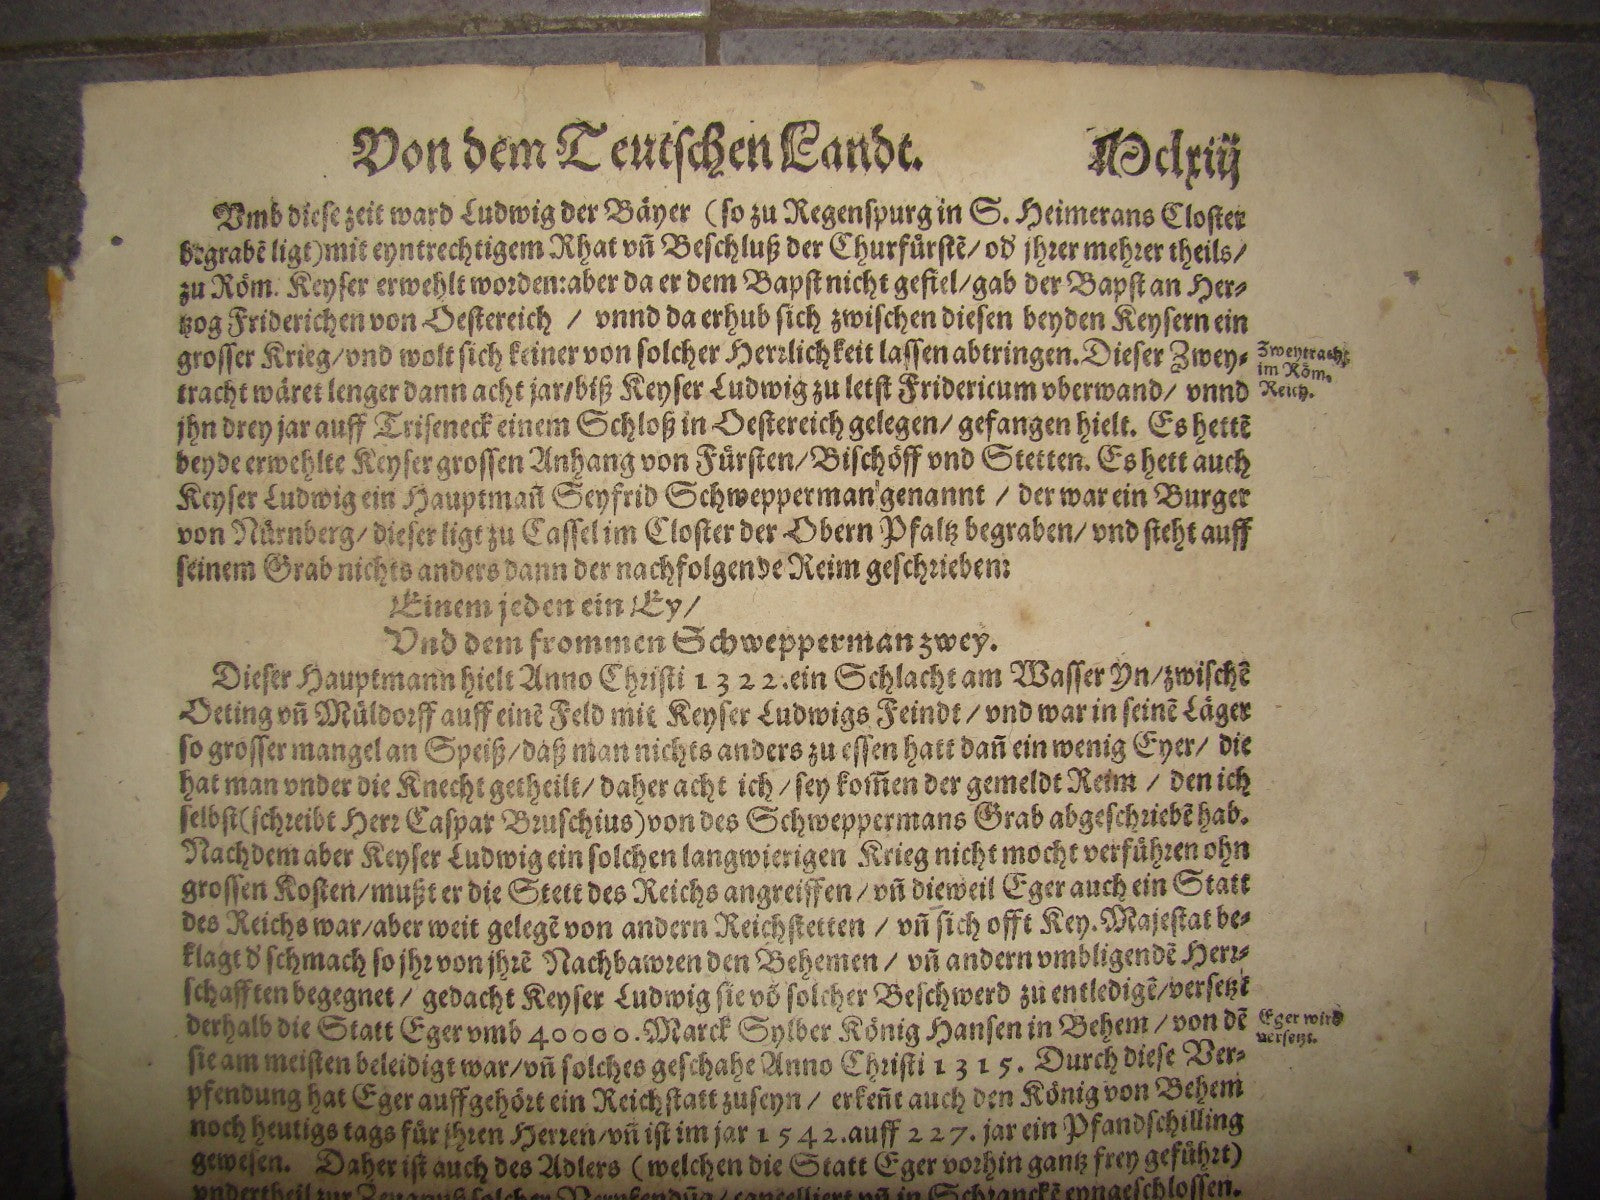 Von dem Teutschen Landt. Mclxiij
Vmb diese zeit ward Ludwig der Bäyer (so zu Regenspurg in S. Heimerans Closter
begrabẽ ligt) mit eyntrechtigem Rhat vñ Beschluß der Churfürstẽ/ od' jhrer mehrer theils/
zu Röm. Keyser erwehlt worden: aber da er dem Bapst nicht gefiel/ gab der Bapst an Her-
tzog Friderichen von Oestereich / vnnd da erhub sich zwischen diesen beyden Keysern ein
grosser Krieg/ vnd wolt sich keiner von solcher Herrlichkeit lassen abtringen. Dieser Zwey-
tracht wäret lenger dann acht jar/ biß Keyser Ludwig zu letst Fridericum vberwand/ vnnd
jhn drey jar auff Triseneck einem Schloß in Oestereich gelegen/ gefangen hielt. Es hettẽ
beyde erwehlte Keyser grossen Anhang von Fürsten/ Bischöff vnd Stetten. Es hett auch
Keyser Ludwig ein Hauptmañ Seyfrid Schwepperman genannt / der war ein Burger
von Nürnberg/ dieser ligt zu Cassel im Closter der Obern Pfaltz begraben/ vnd steht auff
seinem Grab nichts anders dann der nachfolgende Reim geschrieben:
Einem jeden ein Ey/
Vnd dem frommen Schwepperman zwey.
Dieser Hauptmann hielt Anno Christi 1322. ein Schlacht am Wasser Yn/ zwischẽ
Oeting vñ Müldorff auff einẽ Feld mit Keyser Ludwigs Feindt/ vnd war in seinẽ Läger
so grosser mangel an Speiß/ daß man nichts anders zu essen hatt dañ ein wenig Eyer/ die
hat man vnder die Knecht getheilt/ daher acht ich/ sey kom̃en der gemeldt Reim / den ich
selbst (schreibt Herr Caspar Bruschius) von des Schweppermans Grab abgeschriebẽ hab.
Nachdem aber Keyser Ludwig ein solchen langwierigen Krieg nicht mocht verführen ohn
grossen Kosten/ mußt er die Stett des Reichs angreiffen/ vñ dieweil Eger auch ein Statt
des Reichs war/ aber weit gelegẽ von andern Reichstetten / vñ sich offt Key. Majestat be-
klagt d' schmach so jhr von jhrẽ Nachbawren den Behemen / vñ andern vmbligendẽ Herr-
schafften begegnet/ gedacht Keyser Ludwig sie võ solcher Beschwerd zu entledigẽ/ versetzt
derhalb die Statt Eger vmb 40000. Marck Sylber König Hansen in Behem/ von dẽ
sie am meisten beleidigt war/ vñ solches geschahe Anno Christi 1315. Durch diese Ver-
pfendung hat Eger auffgehört ein Reichstatt zuseyn / erkeñt auch den König von Behem
noch heutigs tags für jhren Herren/ vñ ist im jar 1542. auff 227. jar ein Pfandschilling
gewesen. Daher ist auch des Adlers (welchen die Statt Eger vorhin gantz frey geführt)
vndertheil zur Zeugnuß solcher Verpfendũg/ cancelliert vñ in Schranckẽ eyngeschlossen.
Zweytracht
im Röm.
Reich.
Eger wird
versetzt.